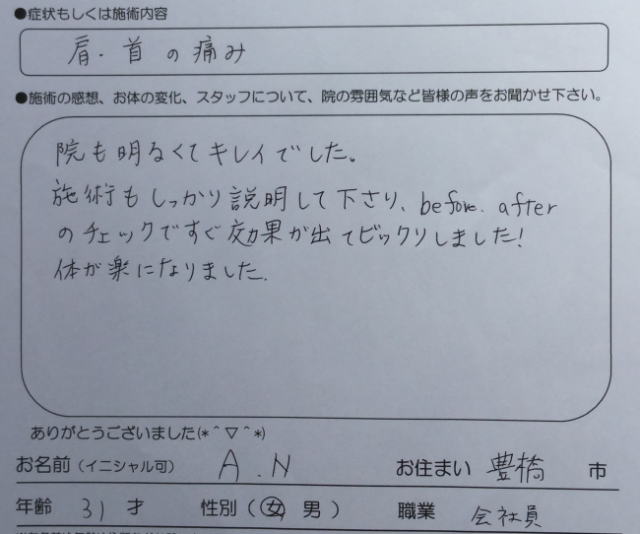 ●症状もしくは施術内容
肩・首の痛み
●施術の感想、お体の変化、スタッフについて、院の雰囲気など皆様の声をお聞かせ下さい。
院も明るくてキレイでした。
施術もしっかり説明して下さり、before. after
のチェックですぐ効果が出てビックリしました!
体が楽になりました.
ありがとうございました(*＾▽＾*)
お名前（イニシャル可） A.N お住まい 豊橋 市
年齢 31 才 性別（女 男） 職業 会社員